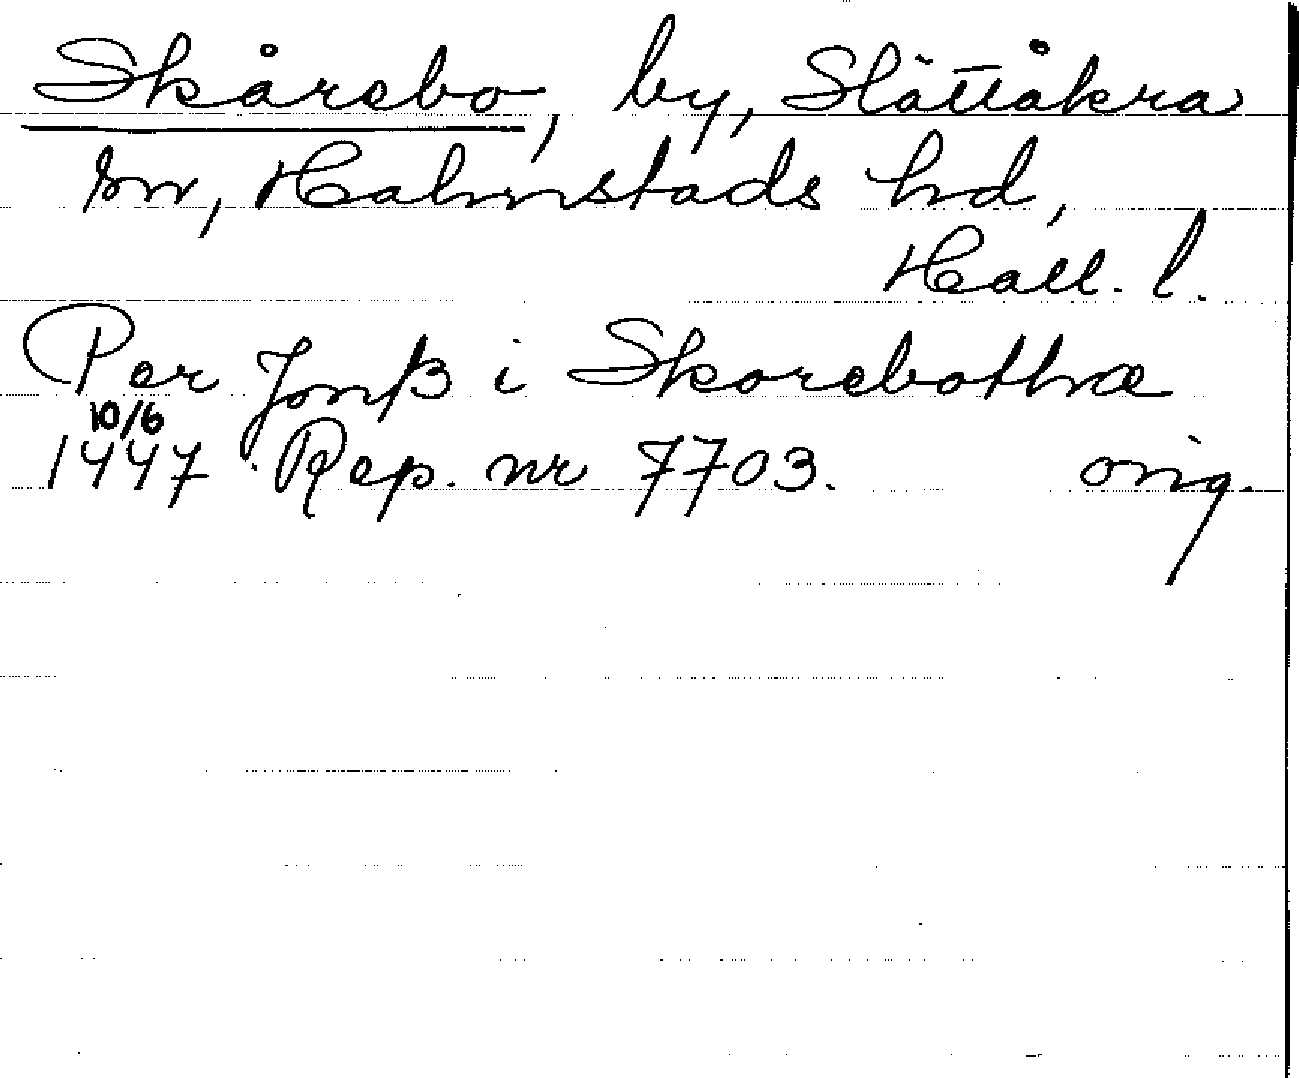 Skårebo, by, Slättåkra
sn, Halmstads hd,
Hall. l.
Per Jonß i Skorebothræ
10/6
1447. Rep. nr 7703. orig.